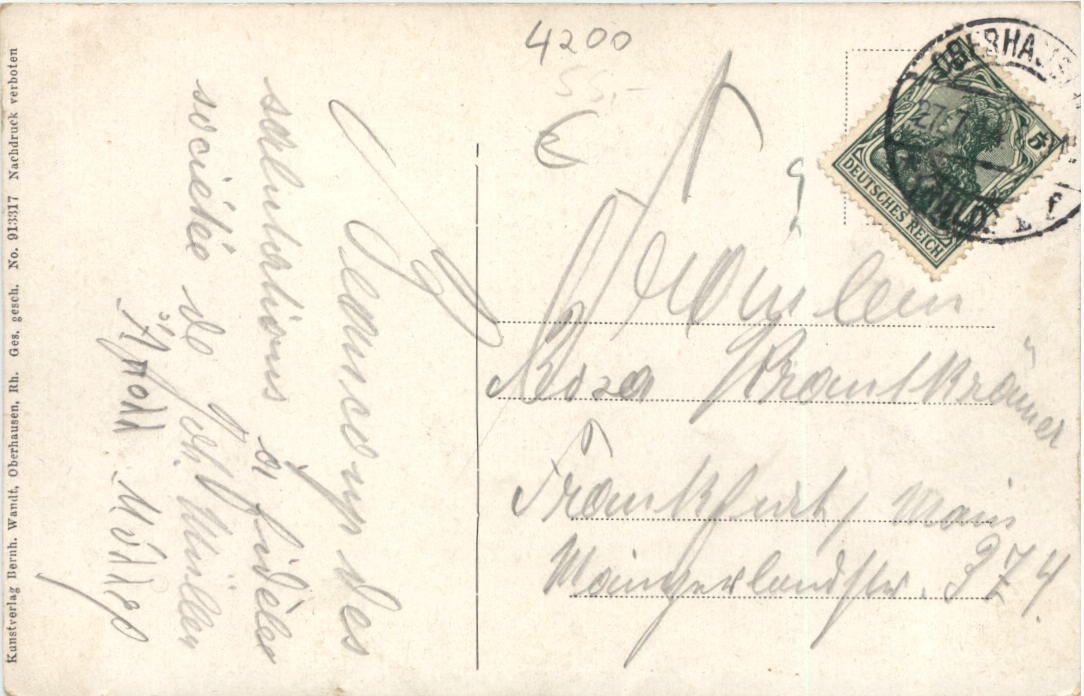 Kunstverlag Bernh. Wandt, Oberhausen, Rh. Ges. gesch. No. 913317 Nachdruck verboten
4200
55.-
Beaucoup des
salutations si fidèles
société de Joh. Müller
DEUTSCHES REICH
5
27.7.
Fräulein
Rosa Krautkrämer
Frankfurt / Main
Mainzerlandstr. 374.